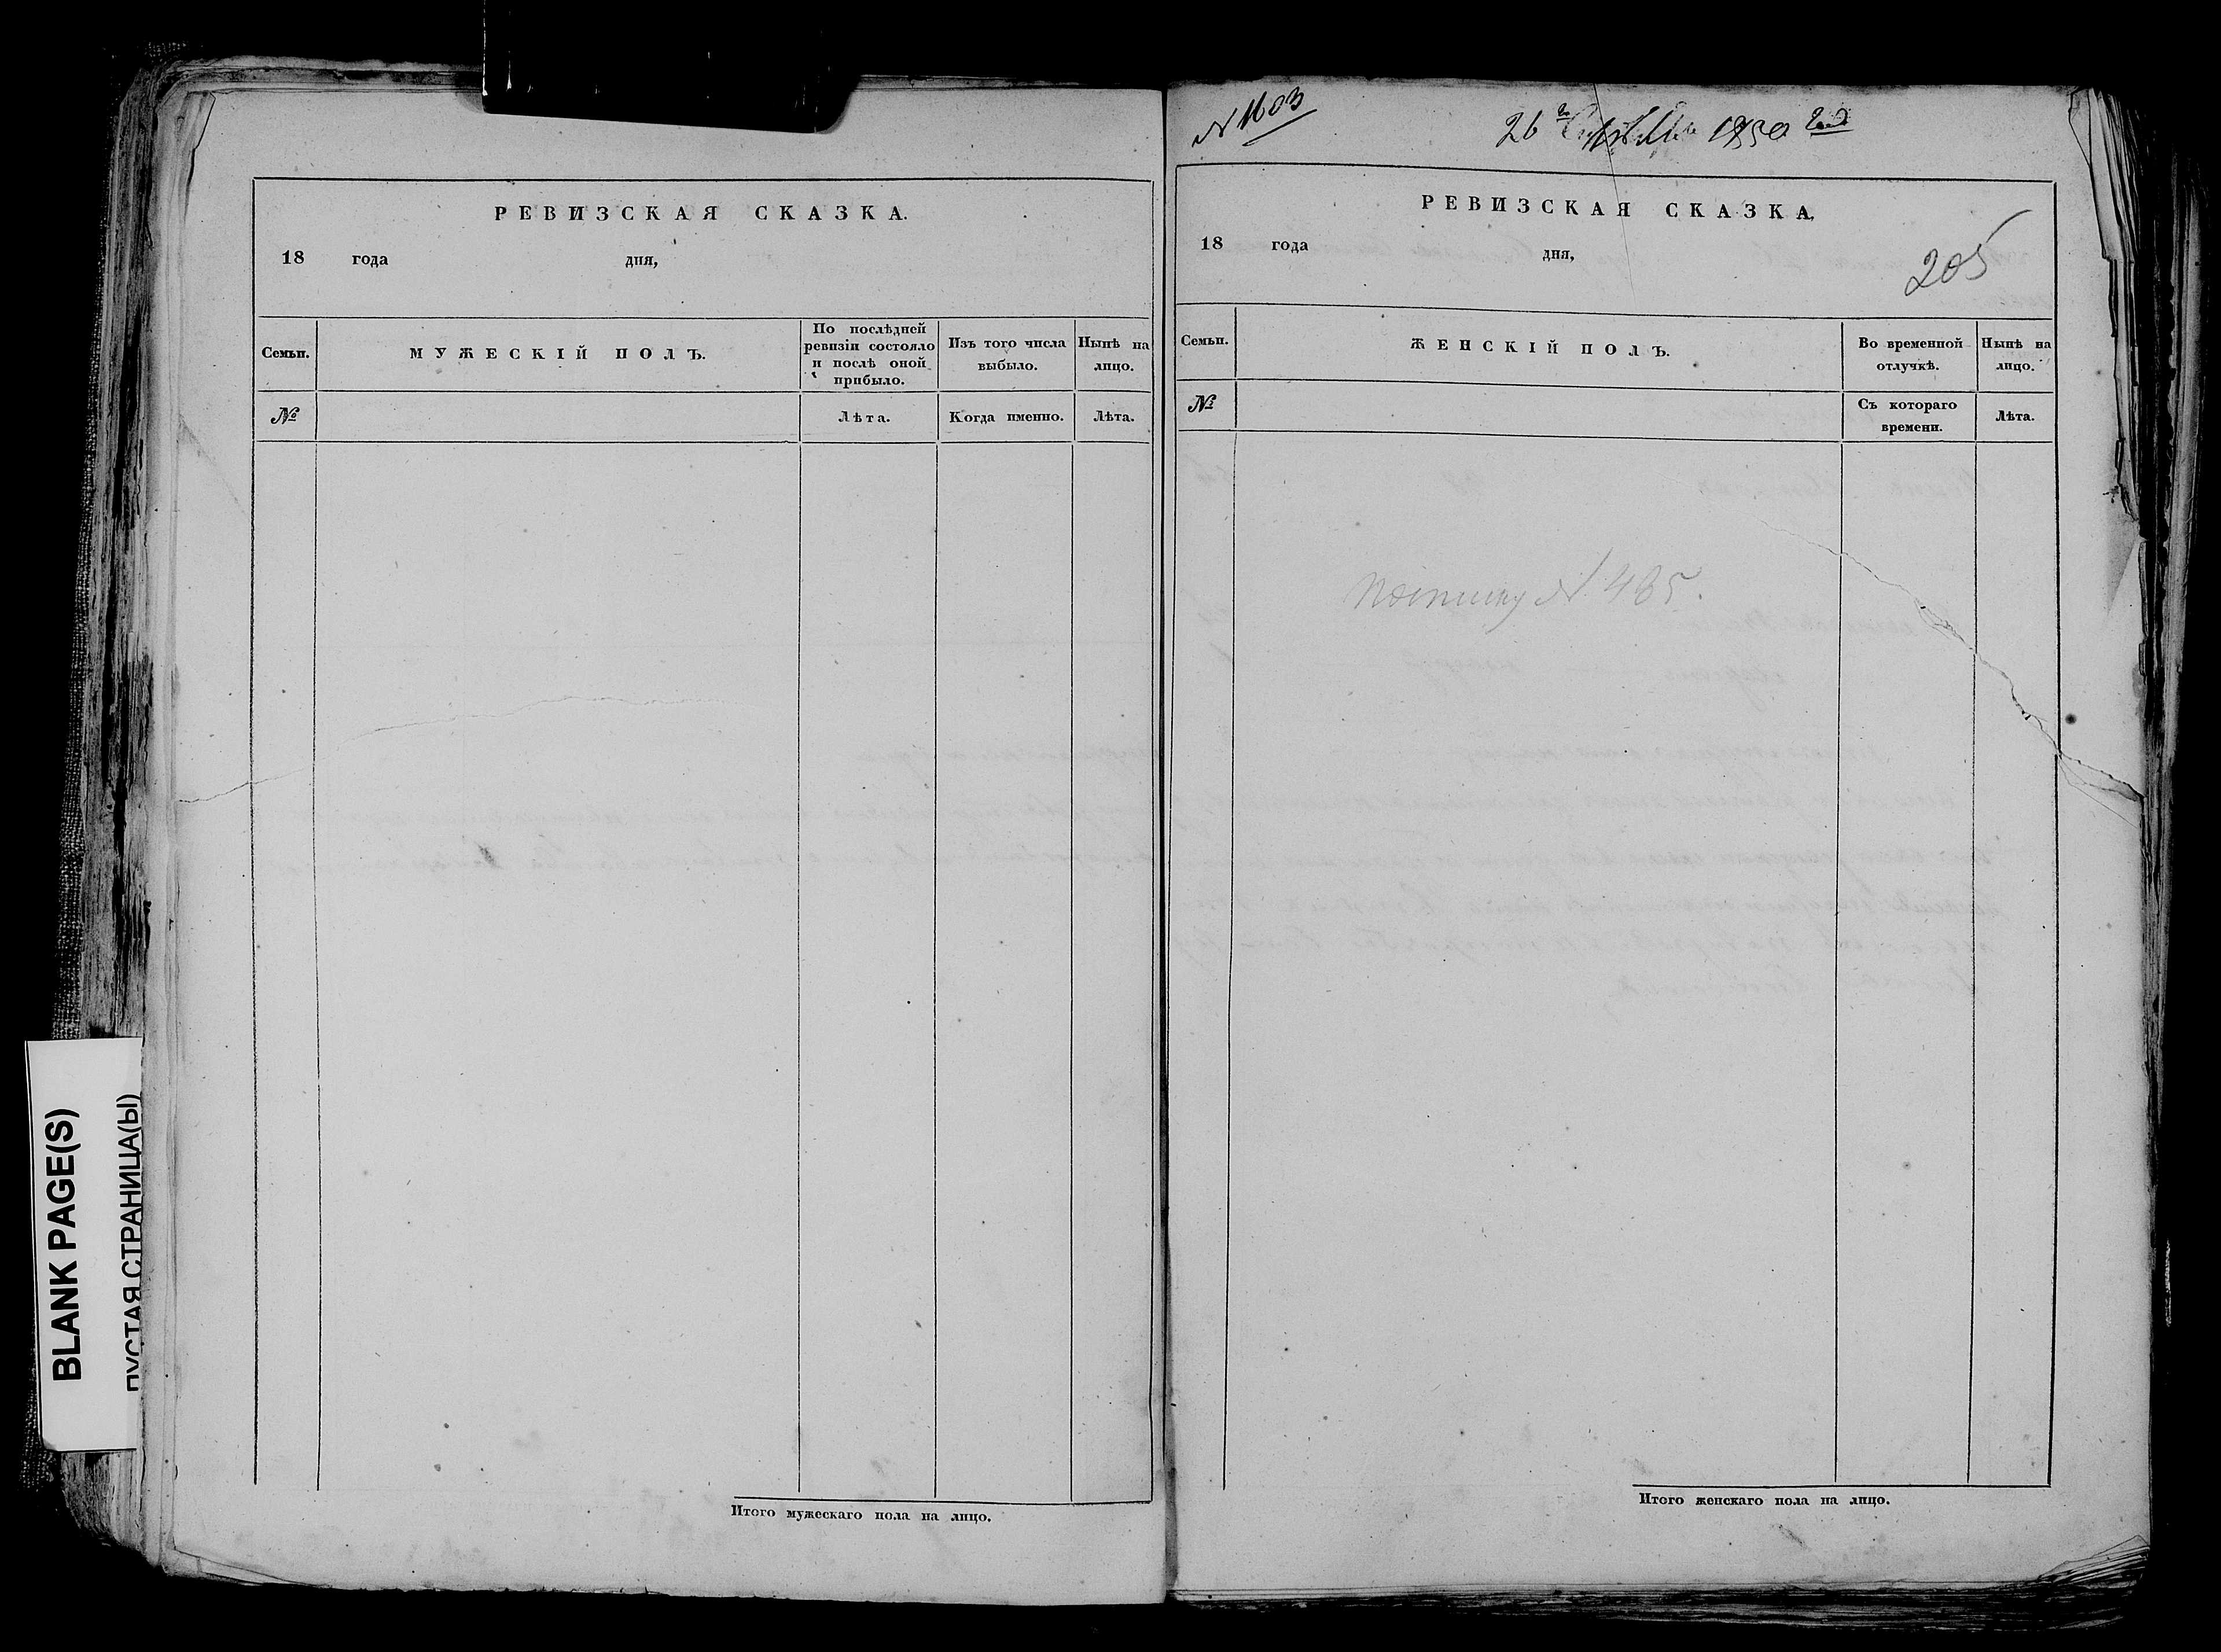 BLANK PAGE(S)
ПУСТАЯ СТРАНИЦА(Ы)
РЕВИЗСКАЯ СКАЗКА.
18 года дня,
Семьи. МУЖЕСКІЙ ПОЛЪ. По послѣдней ревизіи состояло и послѣ оной прибыло. Изъ того числа выбыло. Нынѣ на лицо.
№ Лѣта. Когда именно. Лѣта.
Итого мужескаго пола на лицо.
N 1603
26 1850
РЕВИЗСКАЯ СКАЗКА.
18 года дня,
205
Семьи. ЖЕНСКІЙ ПОЛЪ. Во временной отлучкѣ. Нынѣ на лицо.
№ Съ котораго времени. Лѣта.
N. 485.
Итого женскаго пола на лицо.